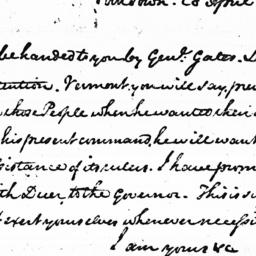 be handed to you by Genl. Gates.
tention. Vermont, you will say, pre
those People when he wanted their
his present command, he will want
sistance of its rulers. I have prom
th Duer, to the Governor. This is
t exert yourselves whenever necessi
I am yours &c